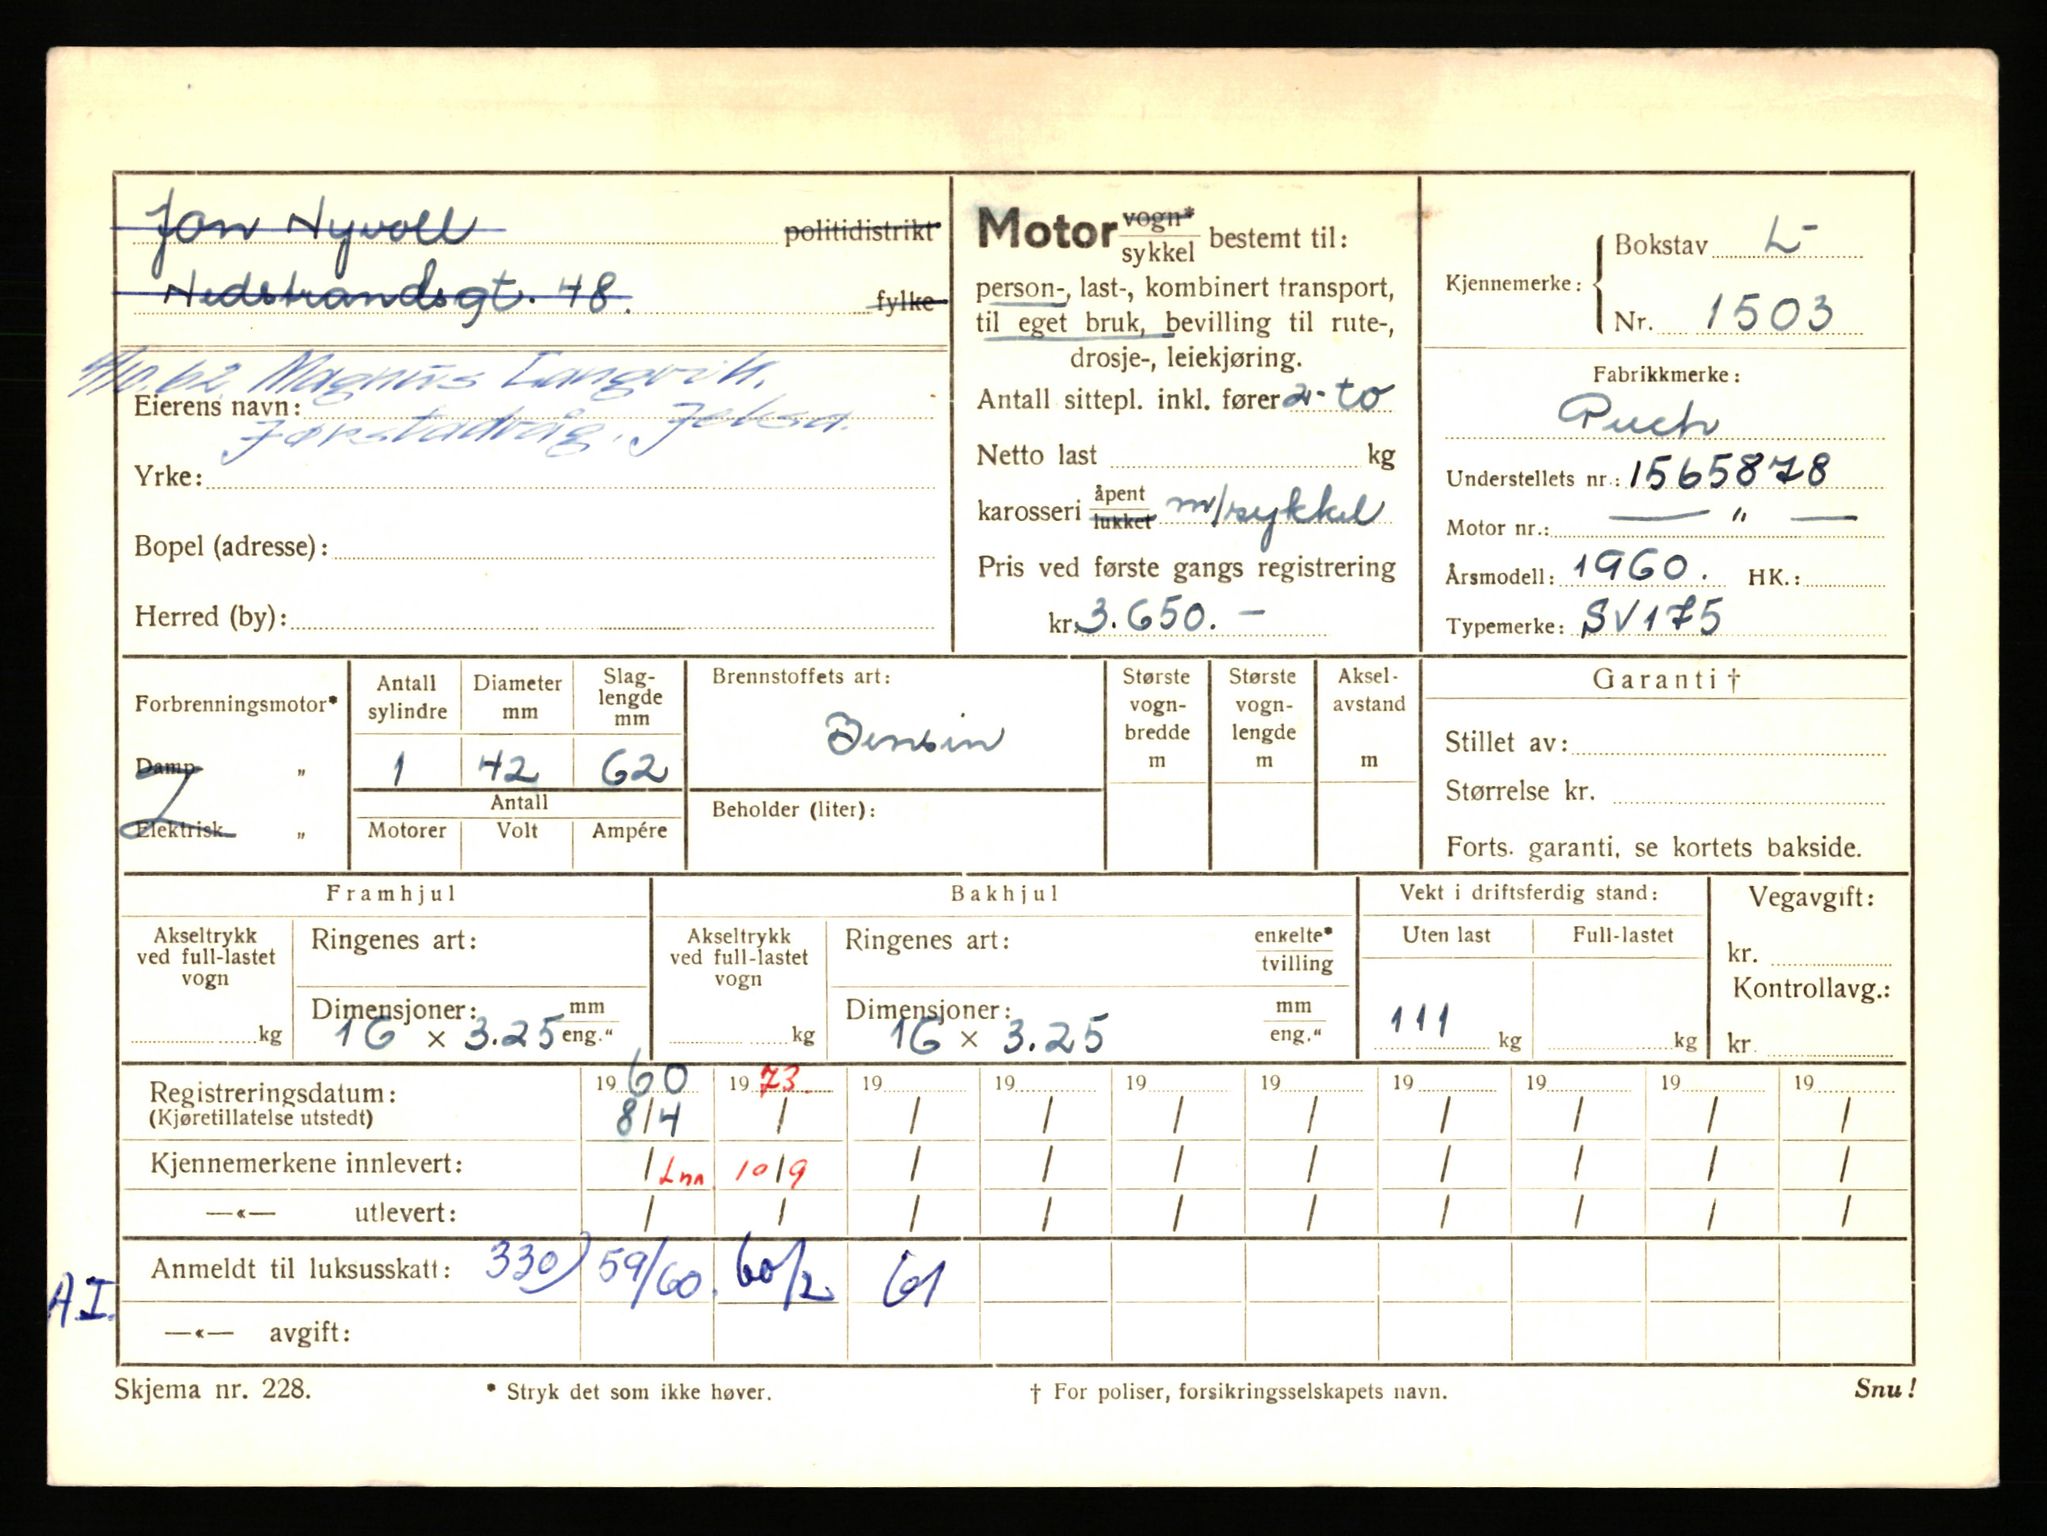 Jon Nyvoll politidistrikt
Nedstrandsgt. 48. fylke
4/10.62. Magnus Langvik.
Eierens navn:
Jørstadvåg, Jelsa.
Yrke:
Bopel (adresse):
Herred (by):
Motor vogn* / sykkel bestemt til:
person-, last-, kombinert transport,
til eget bruk, bevilling til rute-,
drosje-, leiekjøring.
Antall sittepl. inkl. fører 2- to
Netto last kg
karosseri åpent / lukket m/sykkel
Pris ved første gangs registrering
kr. 3.650. —
Kjennemerke: Bokstav L-
Nr. 1503
Fabrikkmerke:
Puch
Understellets nr.: 1565878
Motor nr.: — " —
Årsmodell: 1960. HK.:
Typemerke: SV 175
Forbrenningsmotor*
Damp „
Elektrisk „
Antall sylindre Diameter mm Slag-lengde mm
1 42 62
Antall
Motorer Volt Ampére
Brennstoffets art:
Bensin
Beholder (liter):
Største vogn-bredde m
Største vogn-lengde m
Aksel-avstand m
Garanti †
Stillet av:
Størrelse kr.
Forts. garanti, se kortets bakside.
Framhjul
Akseltrykk ved full-lastet vogn kg
Ringenes art:
Dimensjoner: mm / eng."
16 × 3.25
Bakhjul
Akseltrykk ved full-lastet vogn kg
Ringenes art: enkelte* / tvilling
Dimensjoner: mm / eng."
16 × 3.25
Vekt i driftsferdig stand:
Uten last Full-lastet
111 kg kg
Vegavgift:
kr.
Kontrollavg.:
kr.
Registreringsdatum: 19 60 19 73 19 19 19 19 19 19 19 19
(Kjøretillatelse utstedt) 8/4 / / / / / / / / /
Kjennemerkene innlevert: / Inn. 10/9 / / / / / / / /
—«— utlevert: / / / / / / / / / /
Anmeldt til luksusskatt: 330) 59/60. 60/2 61
A.I.
—«— avgift:
Skjema nr. 228. * Stryk det som ikke høver. † For poliser, forsikringsselskapets navn. Snu!